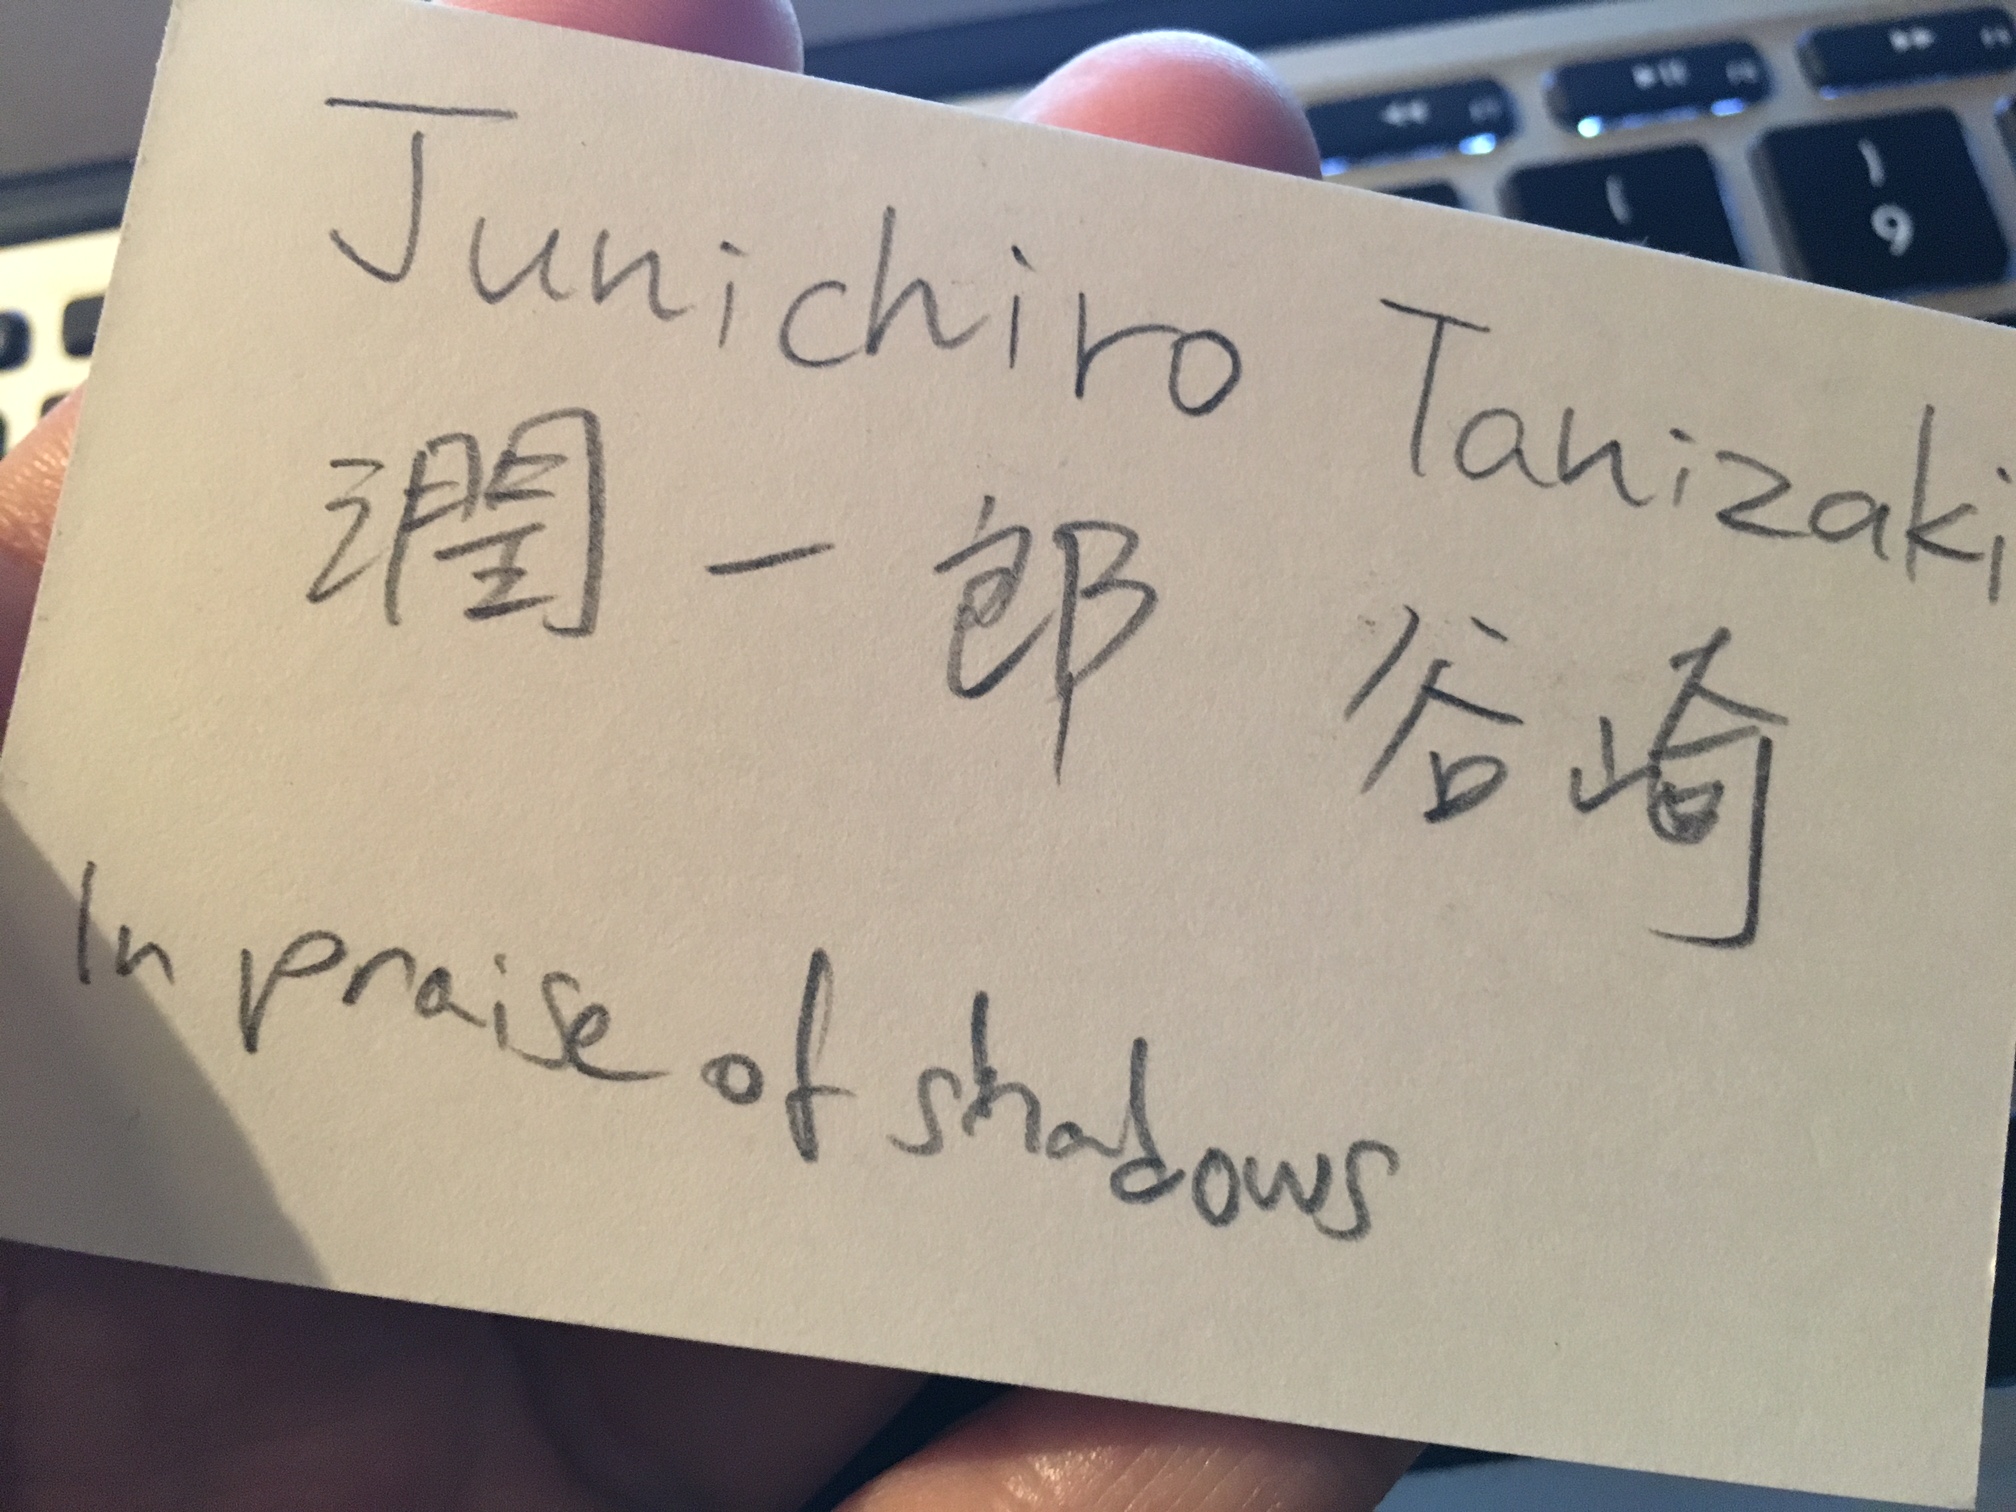 Junichiro Tanizaki
潤一郎 谷崎
In praise of shadows
9